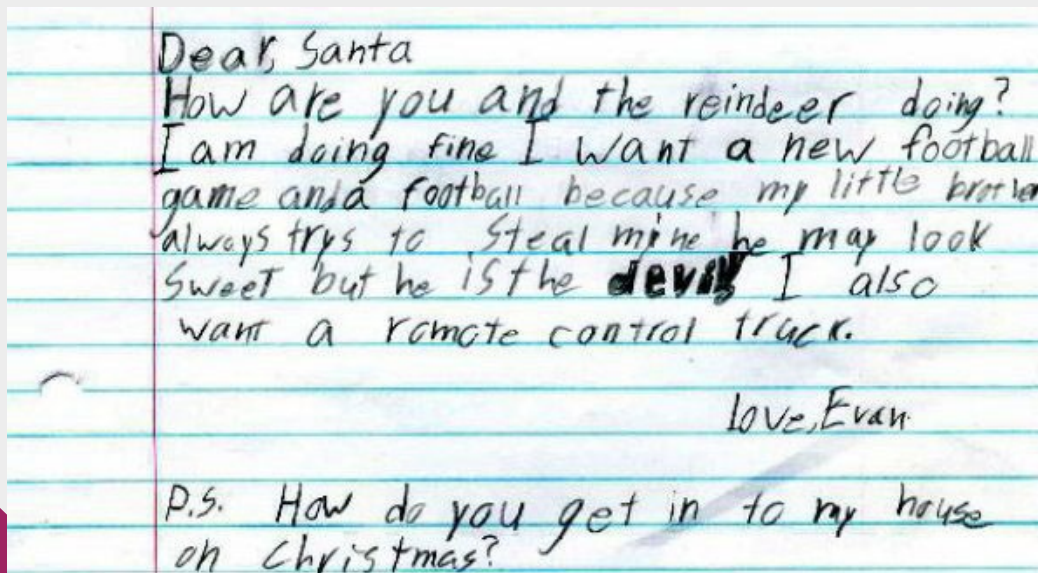 Dear, Santa
How are you and the reindeer doing?
I am doing fine I want a new football
game and a football because my little brother
always trys to steal mine he may look
sweet but he is the devil I also
want a romote control truck.
love, Evan
P.S. How do you get in to my house
on christmas?